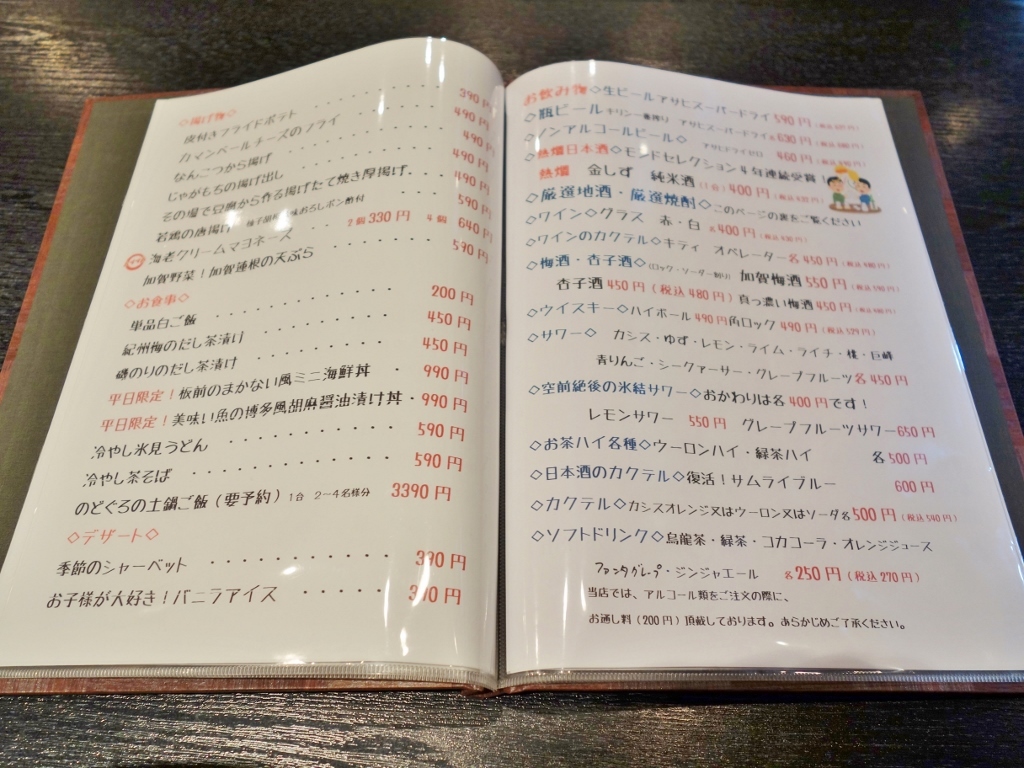 ◇揚げ物◇
皮付きフライドポテト 390円
カマンベールチーズのフライ 490円
なんこつから揚げ 490円
じゃがもちの揚げ出し 490円
その場で豆腐から作る揚げたて焼き厚揚げ 490円
若鶏の唐揚げ 柚子胡椒 おろしポン酢付 590円
海老クリームマヨネーズ 2個330円 4個 640円
加賀野菜!加賀蓮根の天ぷら 590円
◇お食事◇
単品白ご飯 200円
紀州梅のだし茶漬け 450円
磯のりのだし茶漬け 450円
平日限定!板前のまかない風ミニ海鮮丼 990円
平日限定!美味い魚の博多風胡麻醤油漬け丼 990円
冷やし氷見うどん 590円
冷やし茶そば 590円
のどぐろの土鍋ご飯(要予約)1合 2-4名様分 3390円
◇デザート◇
季節のシャーベット 390円
お子様が大好き!バニラアイス 円
お飲み物◇生ビールアサヒスーパードライ590円
◇瓶ビール キリン一番搾り アサヒスーパードライ各630円
◇ノンアルコールビール◇ アサヒドライゼロ 460円
◇熱燗日本酒◇モンドセレクション4年連続受賞!
熱燗 金しず 純米酒(1合)400円
◇厳選地酒・厳選焼酎◇このページの裏をご覧ください
◇ワイン◇グラス 赤・白 各400円
◇ワインのカクテル◇キティ オペレーター各450円
◇梅酒・杏子酒◇(ロック・ソーダ割り) 加賀梅酒550円
杏子酒450円(税込480円)真っ濃い梅酒450円
◇ウイスキー◇ハイボール490円角ロック490円(税込529円)
◇サワー◇ カシス・ゆず・レモン・ライム・ライチ・桃・巨峰
青りんご・シークァーサー・グレープフルーツ各450円
◇空前絶後の氷結サワー◇おかわりは各400円です!
レモンサワー 550円 グレープフルーツサワー650円
◇お茶ハイ各種◇ウーロンハイ・緑茶ハイ 各500円
◇日本酒のカクテル◇復活!サムライブルー 600円
◇カクテル◇カシスオレンジ又はウーロン又はソーダ各500円(税込540円)
◇ソフトドリンク◇烏龍茶・緑茶・コカコーラ・オレンジジュース
ファンタグレープ・ジンジャエール 各250円(税込270円)
当店では、アルコール類をご注文の際に、
お通し料(200円)頂戴しております。あらかじめご了承ください。